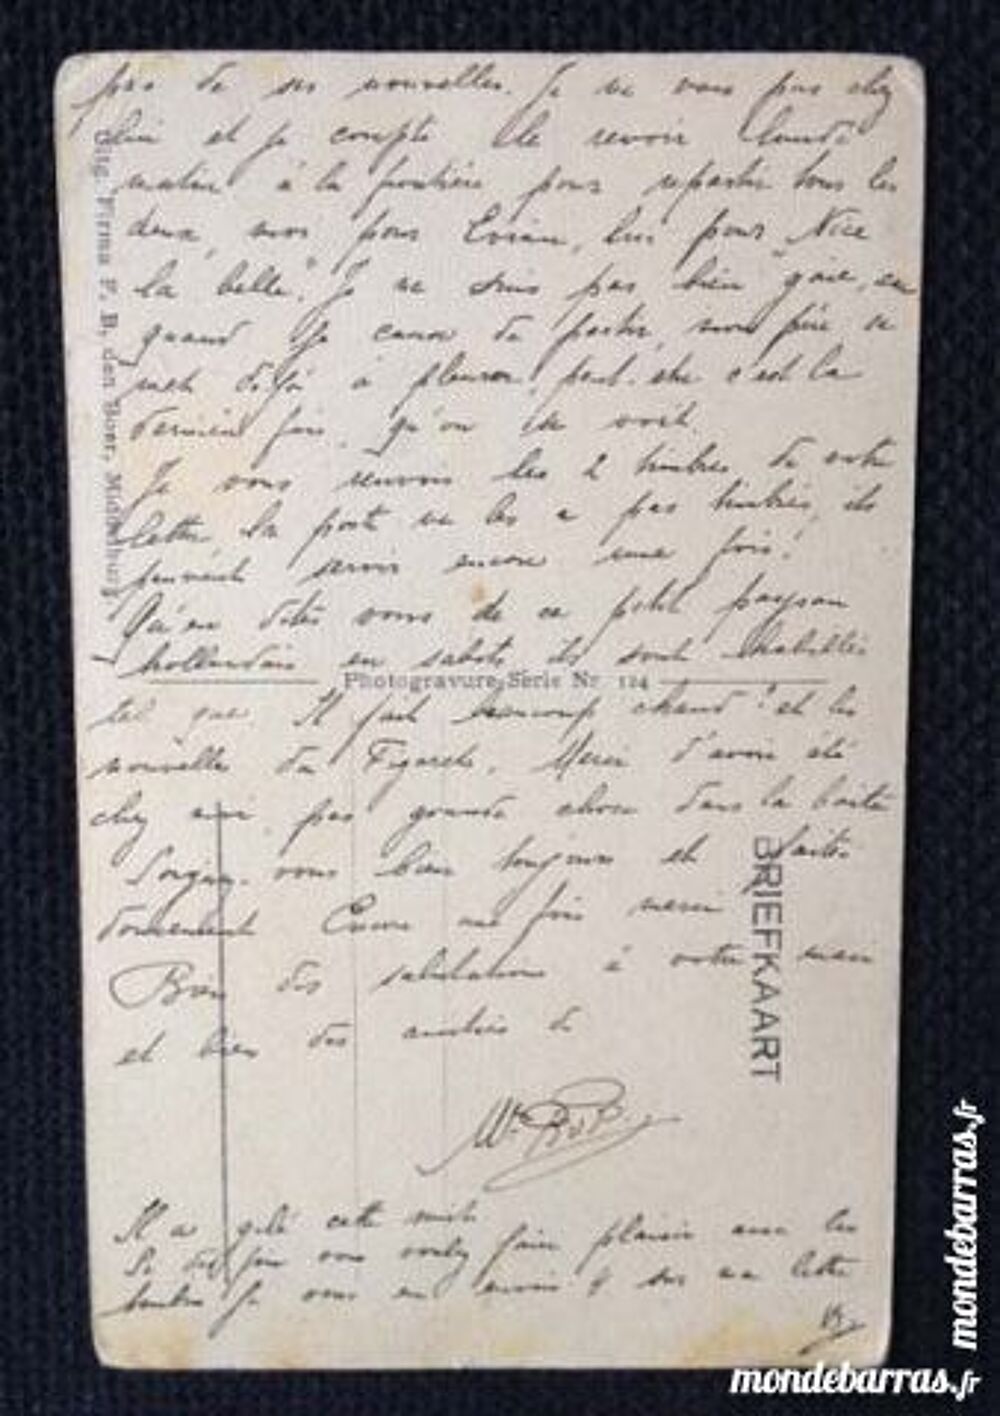 pas de ses nouvelles. Je ne vais pas chez
lui et je compte le revoir lundi
matin à la frontière pour repartir tous les
deux, moi pour Evian, lui pour "Nice
la belle". Je ne suis pas bien gaie, car
quand je cause de partir, mon père se
met déjà à pleurer, peut-être c'est la
dernière fois qu'on se voit.
Je vous renvois les 2 timbres de votre
lettre, la poste ne les a pas timbrés, ils
peuvent servir encore une fois!
Qu'en dites vous de ce petit paysan
hollandais en sabots ils sont habillés
tel que. Il fait beaucoup chaud! et les
nouvelles du Figaro. Merci d'avoir été
chez moi, pas grande chose dans la boîte
Soignez-vous bien toujours et faites
doucement Encore une fois merci
Bien des salutations à votre mari
et bien des amitiés de
Il a gelé cette nuit
Si des fois vous voulez faire plaisir avec les
timbres je vous en envois 4 sur ma lettre
Uitg. Firma F. B. den Boer, Middelburg.
Photogravure Serie Nr. 124
BRIEFKAART
mondebarras.fr
mondebarras.fr